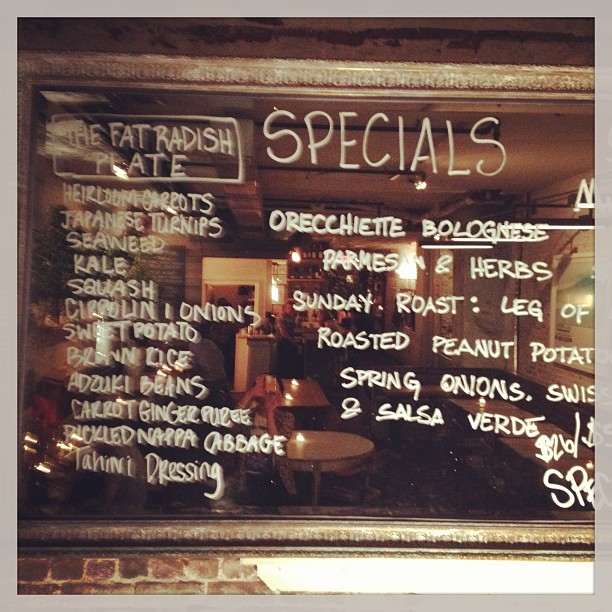 THE FAT RADISH
PLATE
HEIRLOOM CARROTS
JAPANESE TURNIPS
SEAWEED
KALE
SQUASH
CIPPOLINI ONIONS
SWEET POTATO
BROWN RICE
ADZUKI BEANS
CARROT GINGER PUREE
PICKLED NAPPA CABBAGE
Tahini Dressing
SPECIALS
ORECCHIETTE BOLOGNESE
PARMESAN & HERBS
SUNDAY. ROAST: LEG OF
ROASTED PEANUT POTAT
SPRING ONIONS. SWIS
& SALSA VERDE
$26/
SPE